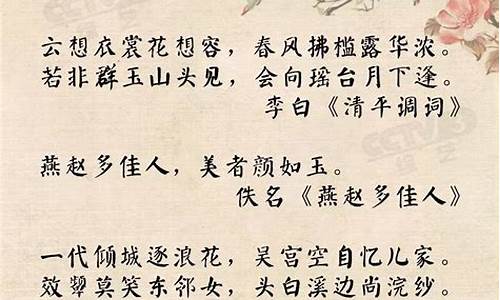 云想衣裳花想容，春风拂槛露华浓。
若非群玉山头见，会向瑶台月下逢。
李白《清平调词》
燕赵多佳人，美者颜如玉。
佚名《燕赵多佳人》
一代倾城逐浪花，吴宫空自忆儿家。
效颦莫笑东邻女，头白溪边尚浣纱。